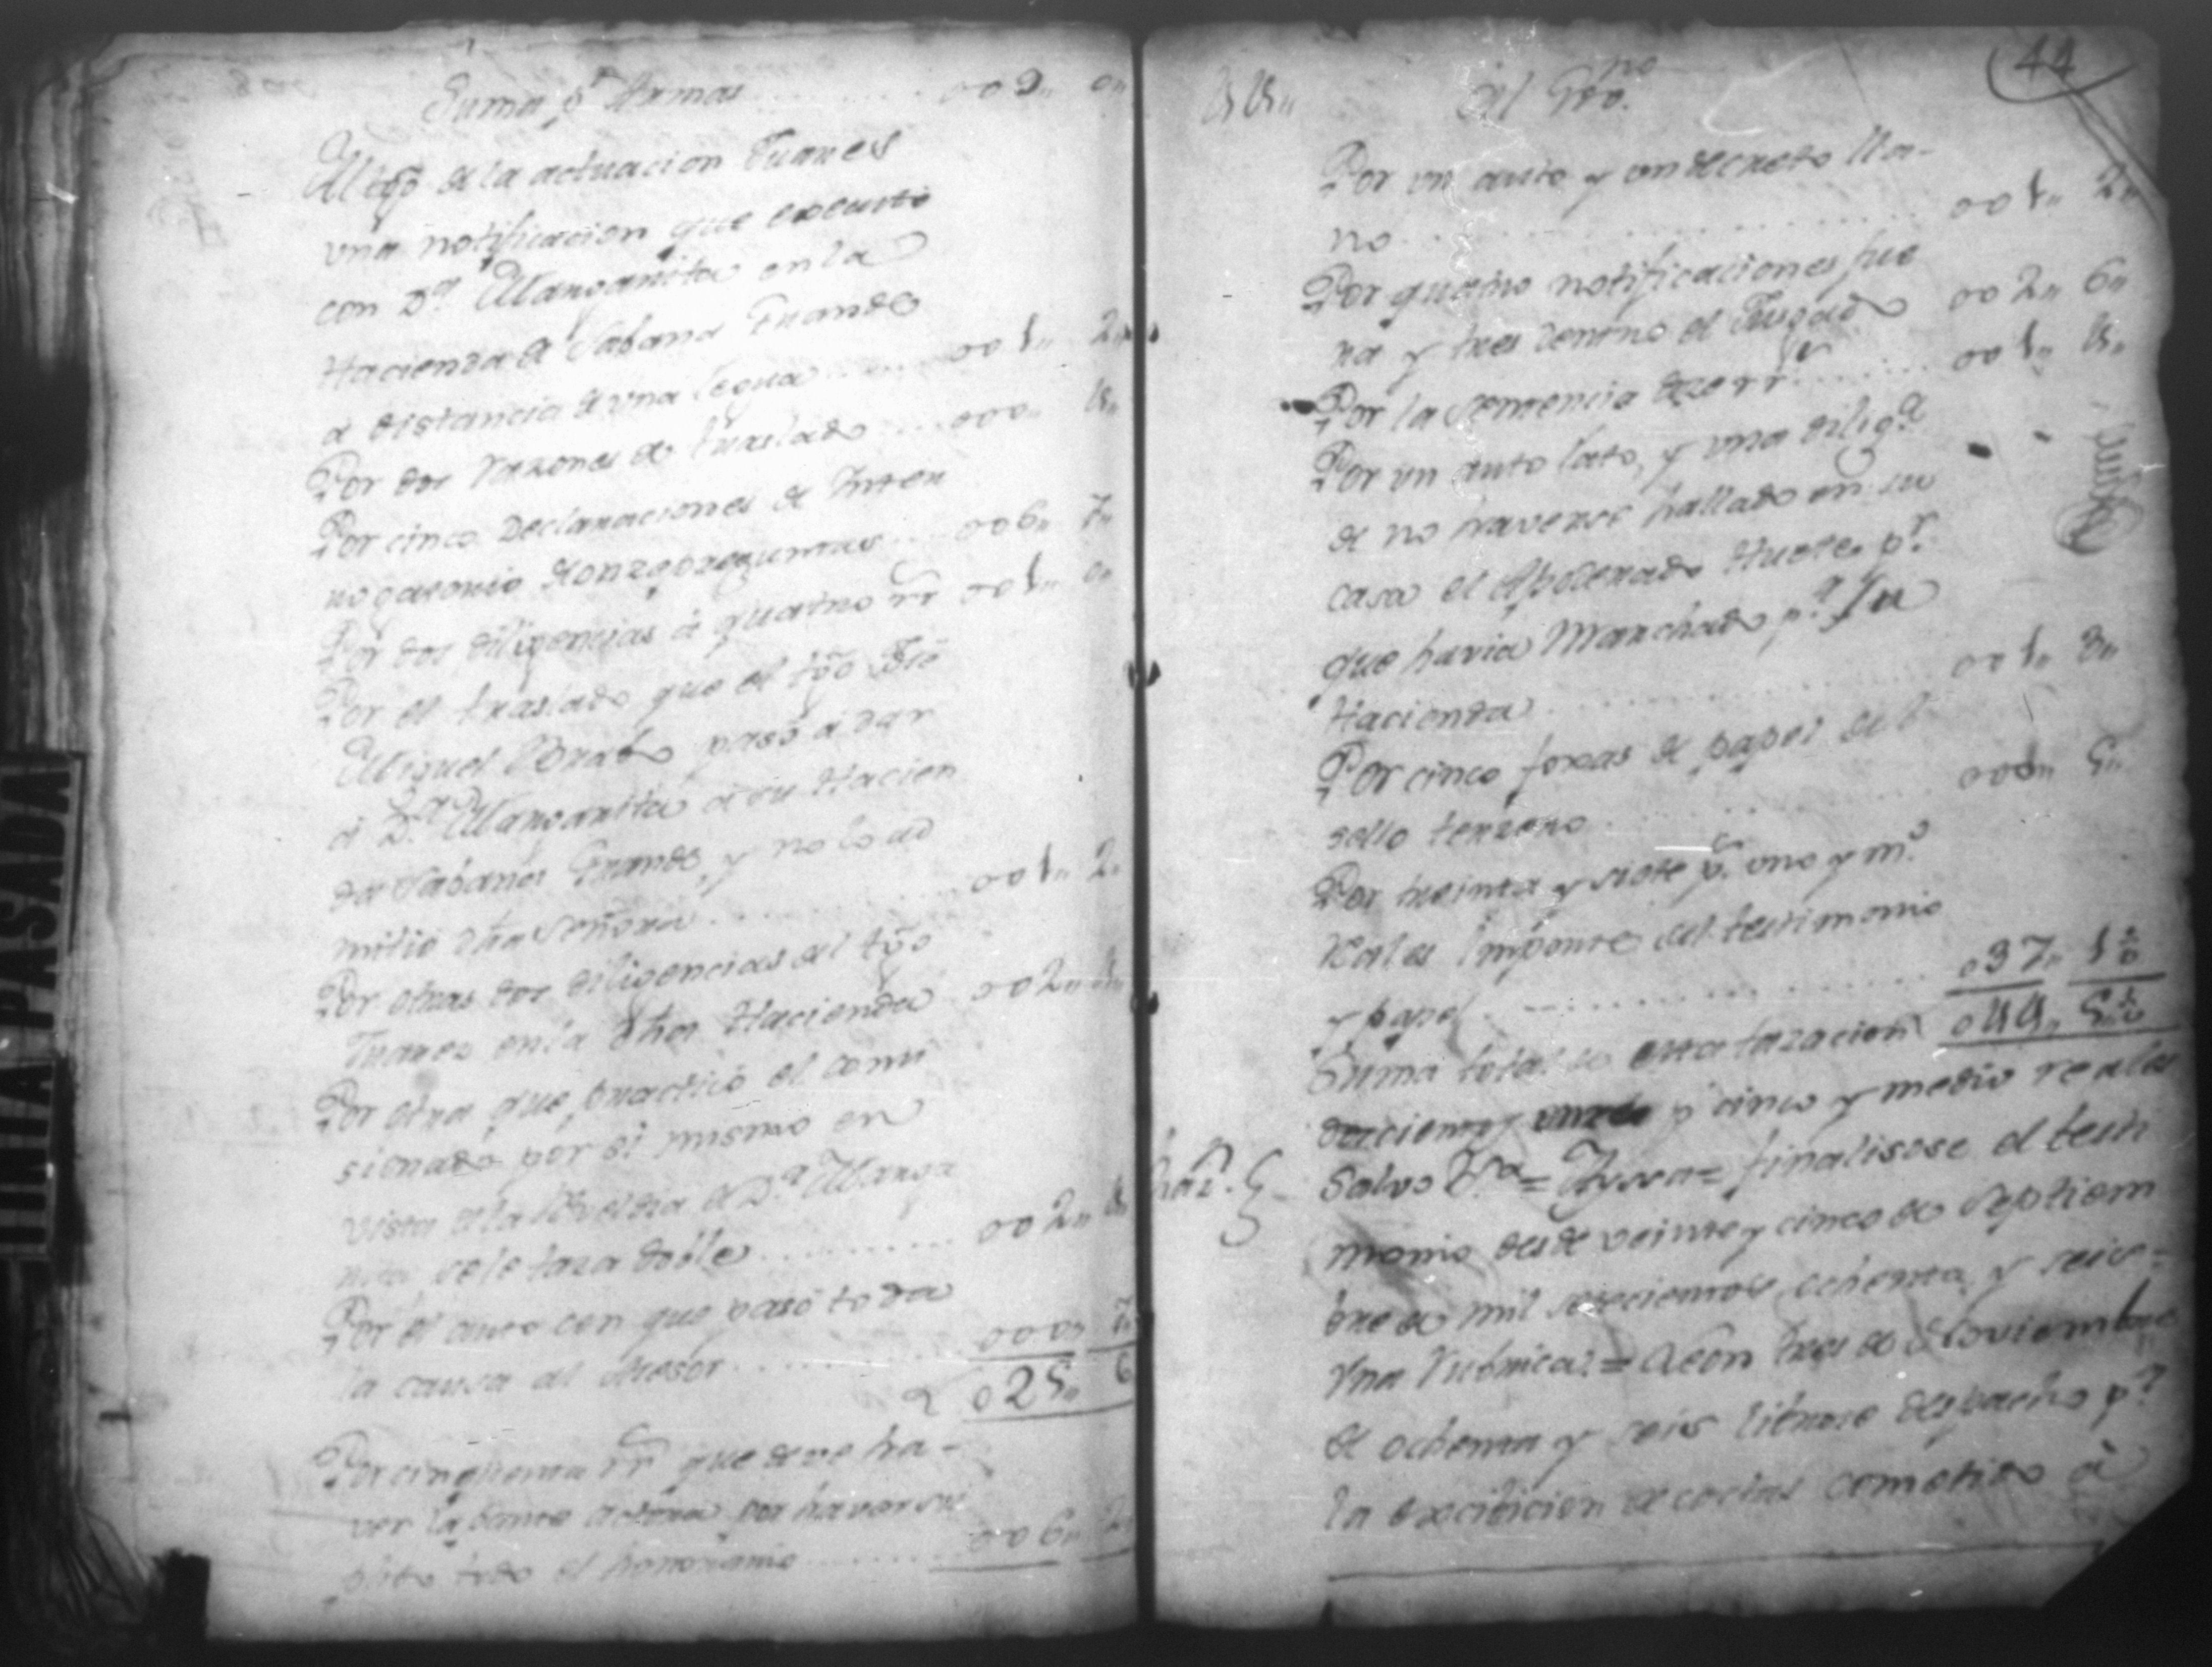 Suma pr. Armas ........ 009,, 0,,
Al tgo de la actuacion Juares
una notificacion que executó
con Da. Manganita en la
Hacienda de Sabana Grande
á distancia de una legua ...... 001,, 2,,
Por dos razones de traslado .... 000,, 4,,
Por cinco Declaraciones de Inten
nogatorio de onze preguntas .... 006,, 7,,
Por dos diligencias á quatro rr 001,, 0,,
Por el traslado que el tgo Dn
Miguel Prado pasó á dar
á Da. Manganita á su Hacien
da Sabana Grande, y no lo ad
mitió dha Señora ........ 001,, 2,,
Por otras dos diligencias del tgo
Juarez en la dha Hacienda .. 002,, 4,,
Por otra que practicó el comi
sionado por si mismo en
vista de la Rveldia de Da. Manga
nita se le taza doble .......... 002,, 4,,
Por el auto con que pasó toda
la causa al Asesor .......... 000,, 7,,
025,, 6
Por cinquenta rr que deve ha-
ver la parte actora por haver su
plido todo el honorario ........ 006,, 2
44
44,, Al Essno.
Por un auto y un decreto lla-
no ............ 001,, 2,,
Por quatro notificaciones fue
ra y tres dentro el Jusgado 002,, 6,,
Por la sentencia doze rr. ...... 001,, 4,,
Por un auto lato, y una diliga
de no haverse hallado en su
casa el Apoderado Huete pr.
que havia Marchado pa. su
Hacienda ............ 001,, 3,,
Por cinco foxas de papel del
sello terzero ............ 000,, 5,,
Por treinta y siete ps. uno y mo.
reales Importe del testimonio
y papel ............ 037,, 1 ½
Suma total de esta tazacion 044,, 5 ½
doscientos p cinco y medio reales
Salvo Ya = Ayssa = finalisose el testi
monio desde veinte y cinco de Septiem
bre de mil setecientos ochenta y seis =
Una Rubrica: = Leon tres de Noviembre
de ochenta y seis librose despacho pa.
la exacicion de costas cometido á